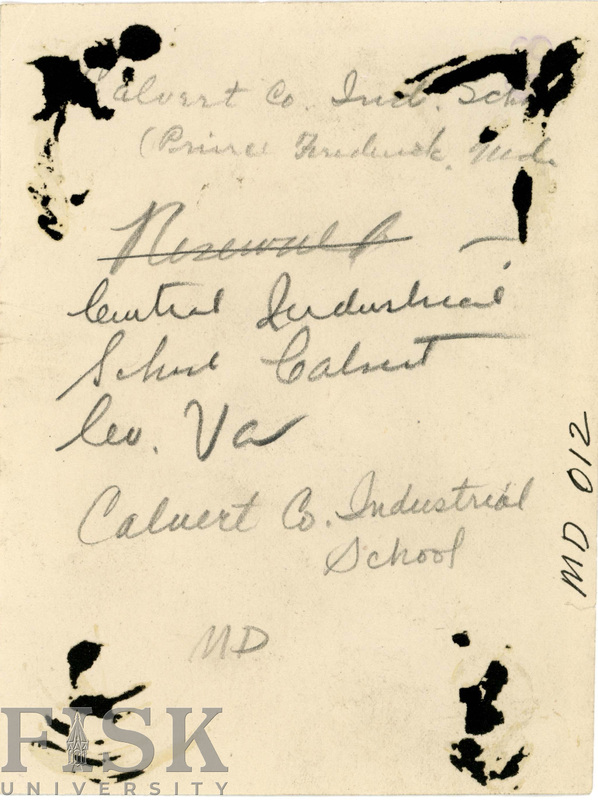 Calvert Co. Ind. School
(Prince Frederick, Md.
Central Industrial
School Calvert
Co. Va
Calvert Co. Industrial
School
MD
MD 012
FISK
UNIVERSITY